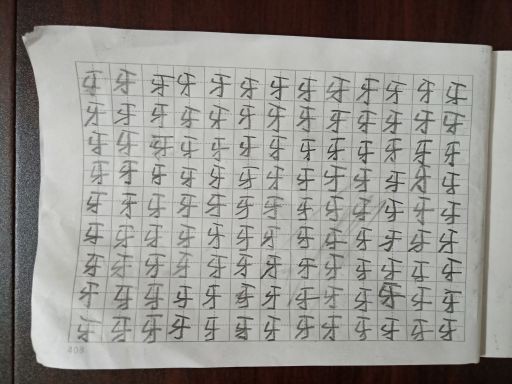 牙牙牙牙牙牙牙牙牙牙牙牙牙
牙牙牙牙牙牙牙牙牙牙牙牙牙
牙牙牙牙牙牙牙牙牙牙牙牙牙
牙牙牙牙牙牙牙牙牙牙牙牙牙
牙牙牙牙牙牙牙牙牙牙牙牙牙
牙牙牙牙牙牙牙牙牙牙牙牙牙
牙牙牙牙牙牙牙牙牙牙牙牙牙
牙牙牙牙牙牙牙牙牙牙牙牙牙
牙牙牙牙牙牙牙牙牙牙牙牙牙